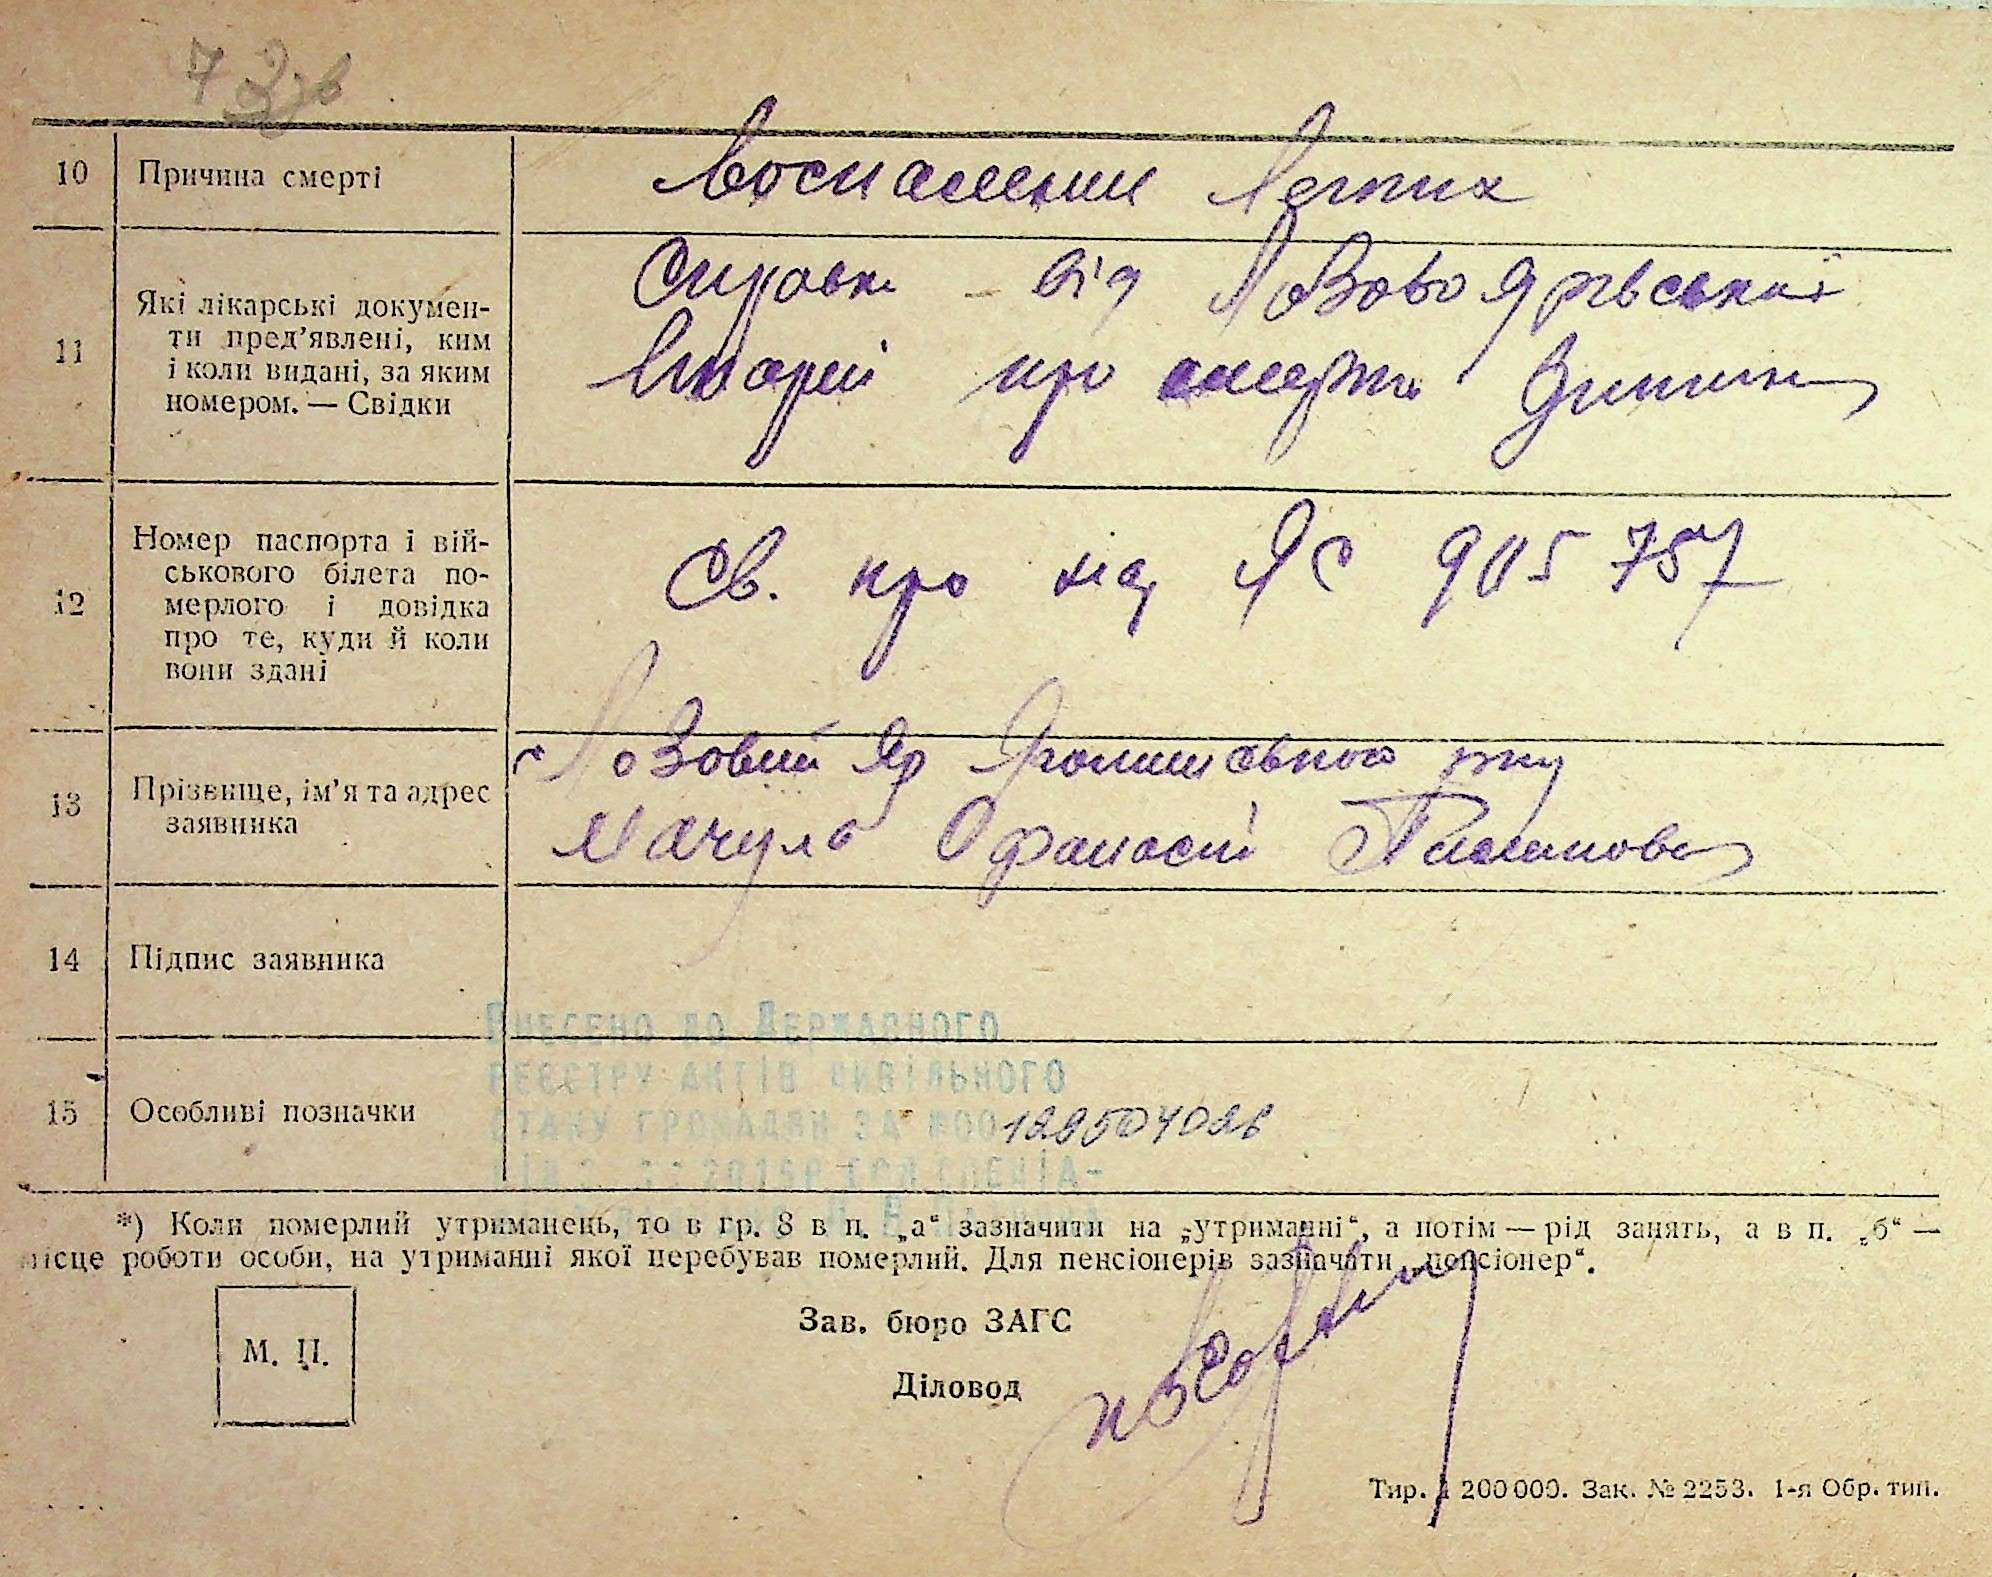 10 Причина смерті Воспаление Легких
11 Які лікарські докумен-
ти пред’явлені, ким
і коли видані, за яким
номером. — Свідки
Справка від Лозовоярівської
лікарні про смерть
12 Номер паспорта і вій-
ськового білета по-
мерлого і довідка
про те, куди й коли
вони здані
Св. про нар ЯС 905757
13 Прізвище, ім’я та адрес
заявника
с Лозовий Яр рну
Мачула Офанасій
14 Підпис заявника
15 Особливі позначки
Внесено до Державного
реєстру актів цивільного
стану громадян за №00
*) Коли померлий утриманець, то в гр. 8 в п. „а“ зазначити на „утриманні“, а потім — рід занять, а в п. „б“ —
місце роботи особи, на утриманні якої перебував померлий. Для пенсіонерів зазначати „пенсіонер“.
М. П.
Зав. бюро ЗАГС
Діловод
Тир. 1 200 000. Зак. № 2253. 1-я Обр. тип.